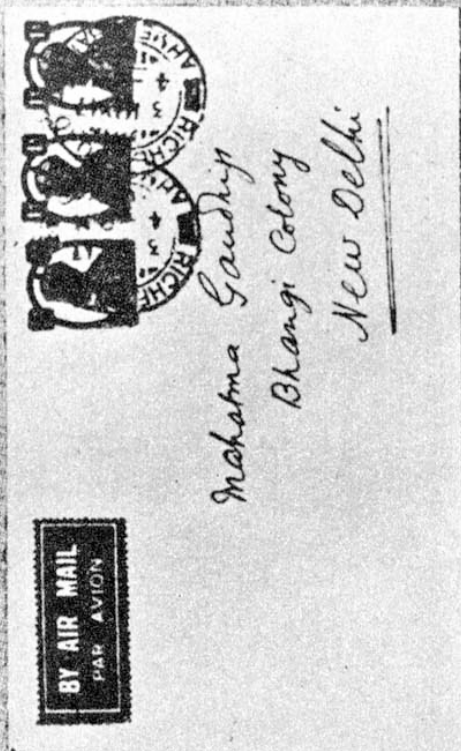 BY AIR MAIL
PAR AVION
Mahatma Gandhiji
Bhangi Colony
New Delhi